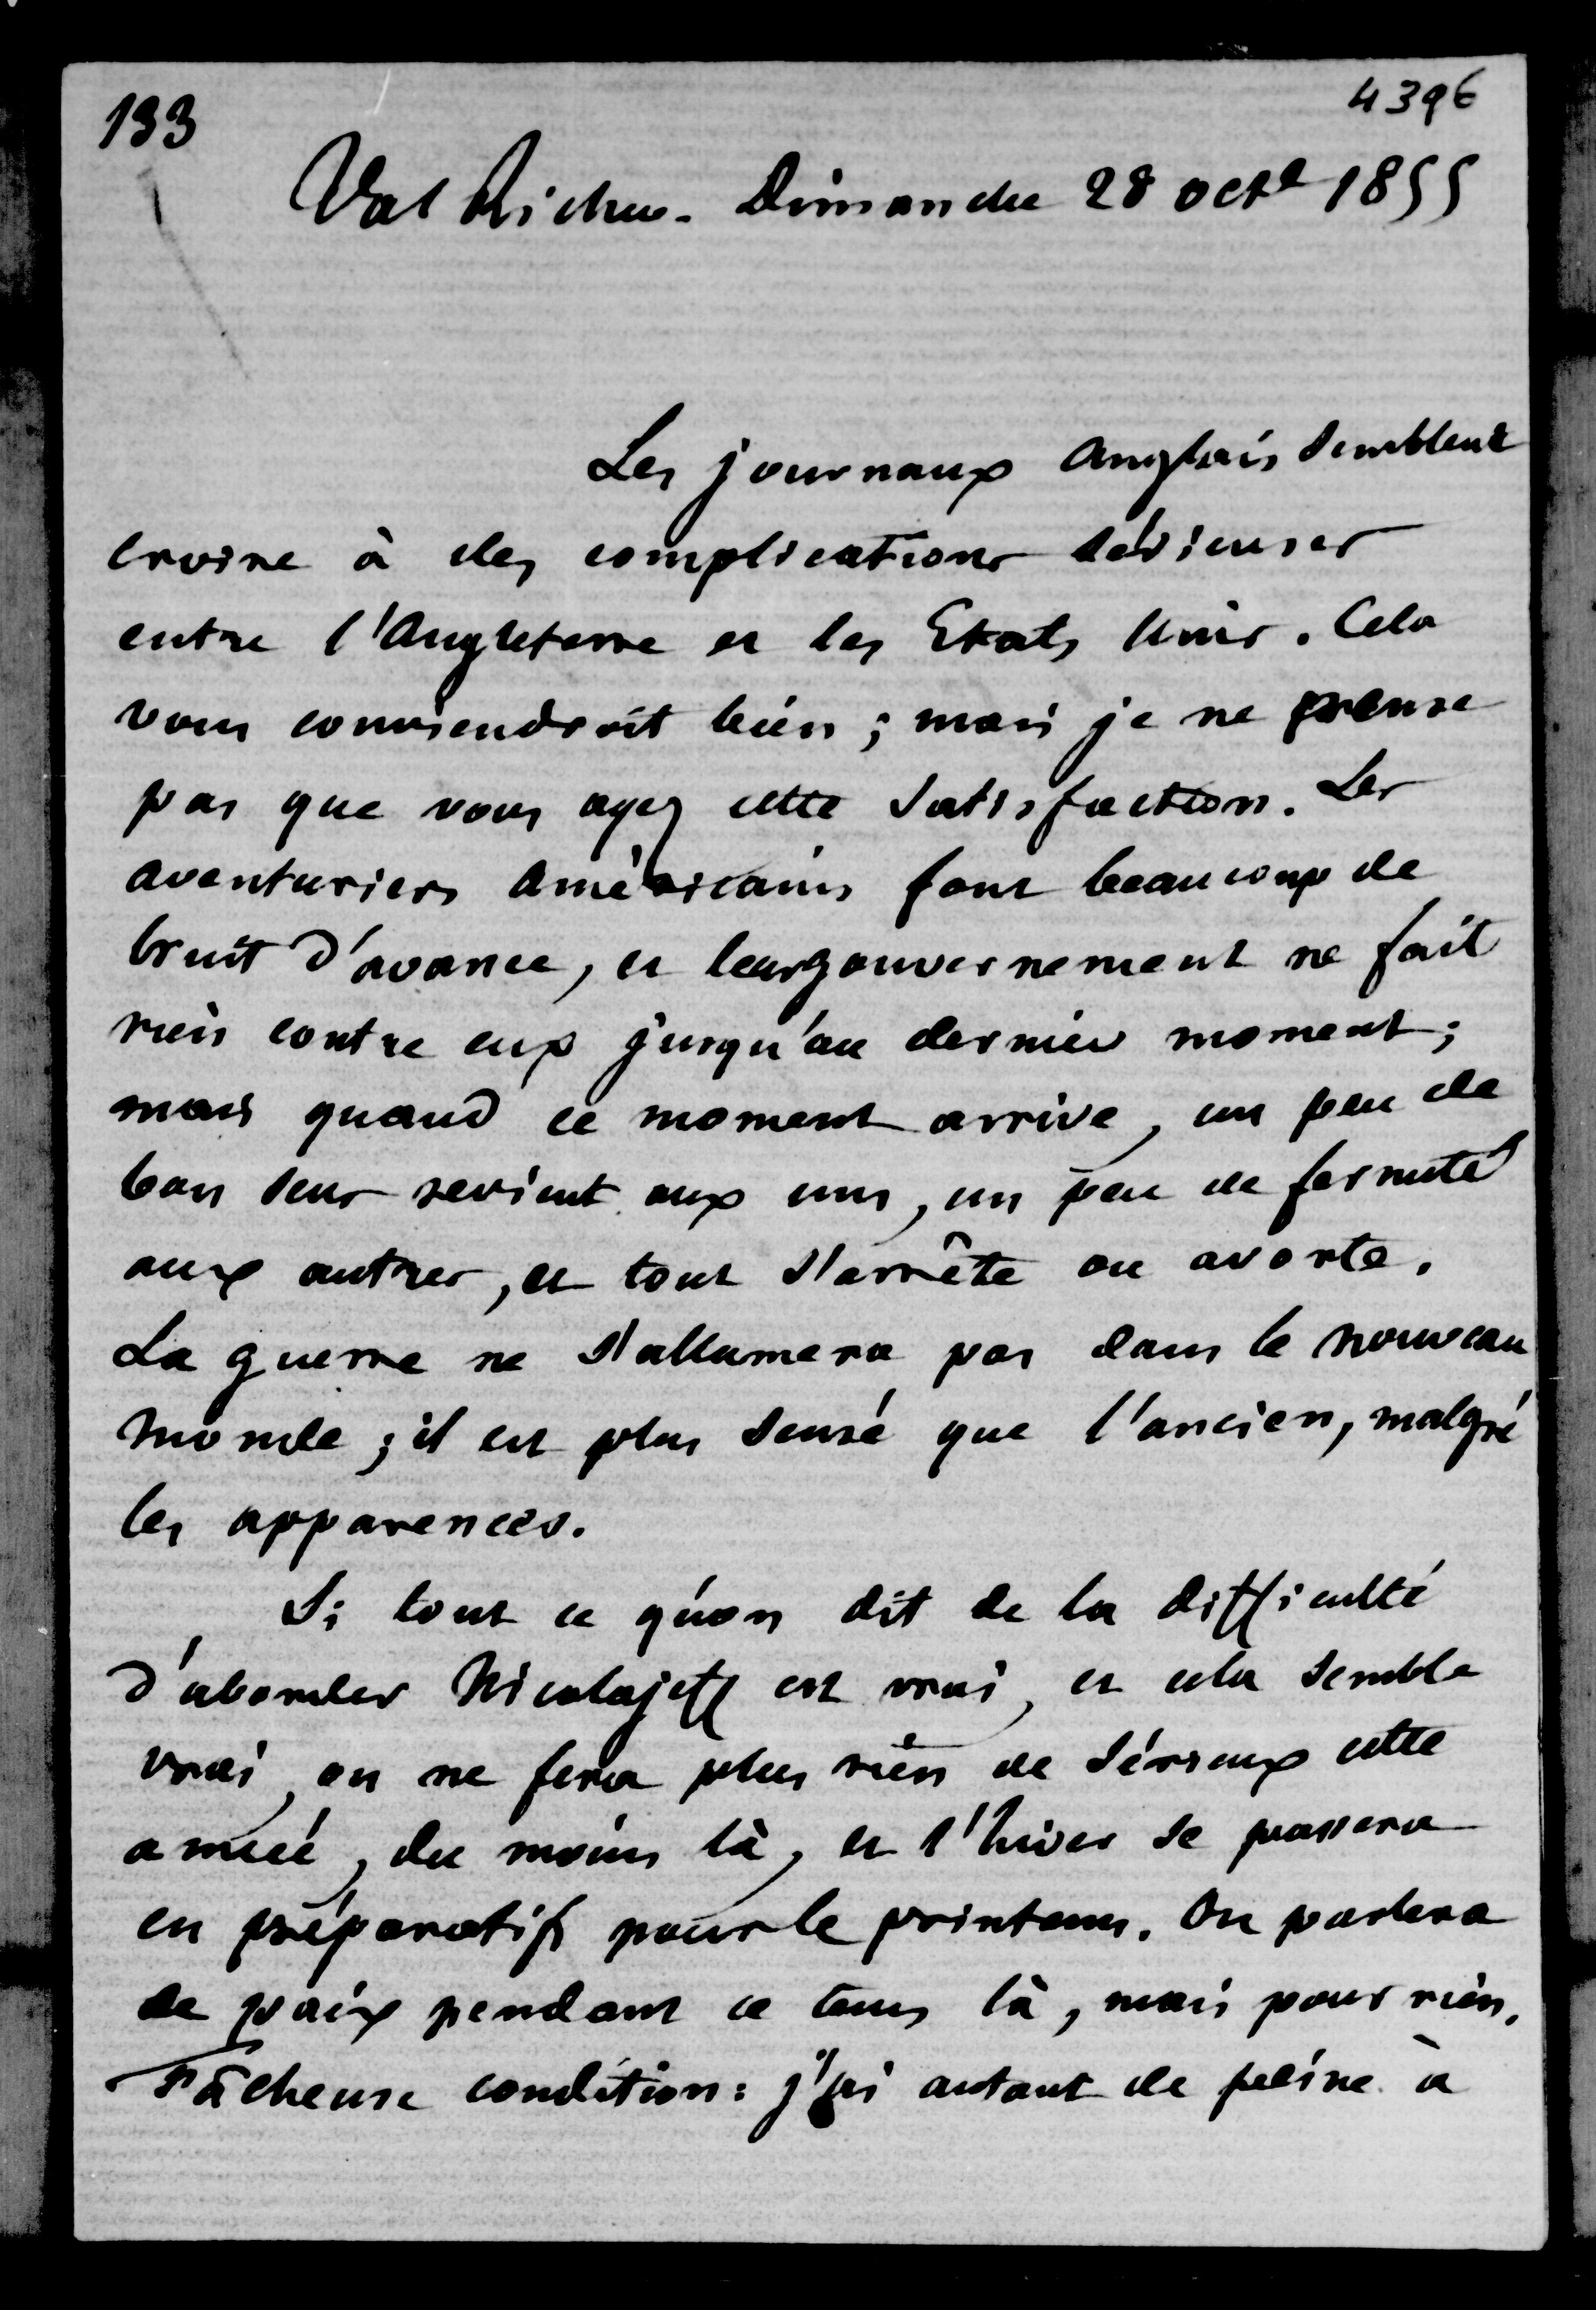 133
4396
Val Richer. Dimanche 28 octe 1855
Les journaux Anglais semblent
croire à des complications sérieuses
entre l'Angleterre et les Etats Unis. Cela
vous conviendroit bien ; mais je ne pense
pas que vous ayez cette satisfaction. Les
aventuriers américains font beaucoup de
bruit d'avance, et leur gouvernement ne fait
rien contre eux jusqu'au dernier moment ;
mais quand ce moment arrive, un peu de
bon sens revient aux uns, un peu de fermeté
aux autres, et tout s'arrête ou avorte.
La guerre ne s'allumera pas dans le nouveau
monde ; il est plus sensé que l'ancien, malgré
les apparences.
Si tout ce qu'on dit de la difficulté
d'aborder Nicolajeff est vrai, et cela semble
vrai, on ne fera plus rien de sérieux cette
année, du moins là, et l'hiver se passera
en préparatifs pour le printems. On parlera
de paix pendant ce tems là, mais pour rien.
Fâcheuse condition : j'ai autant de peine à